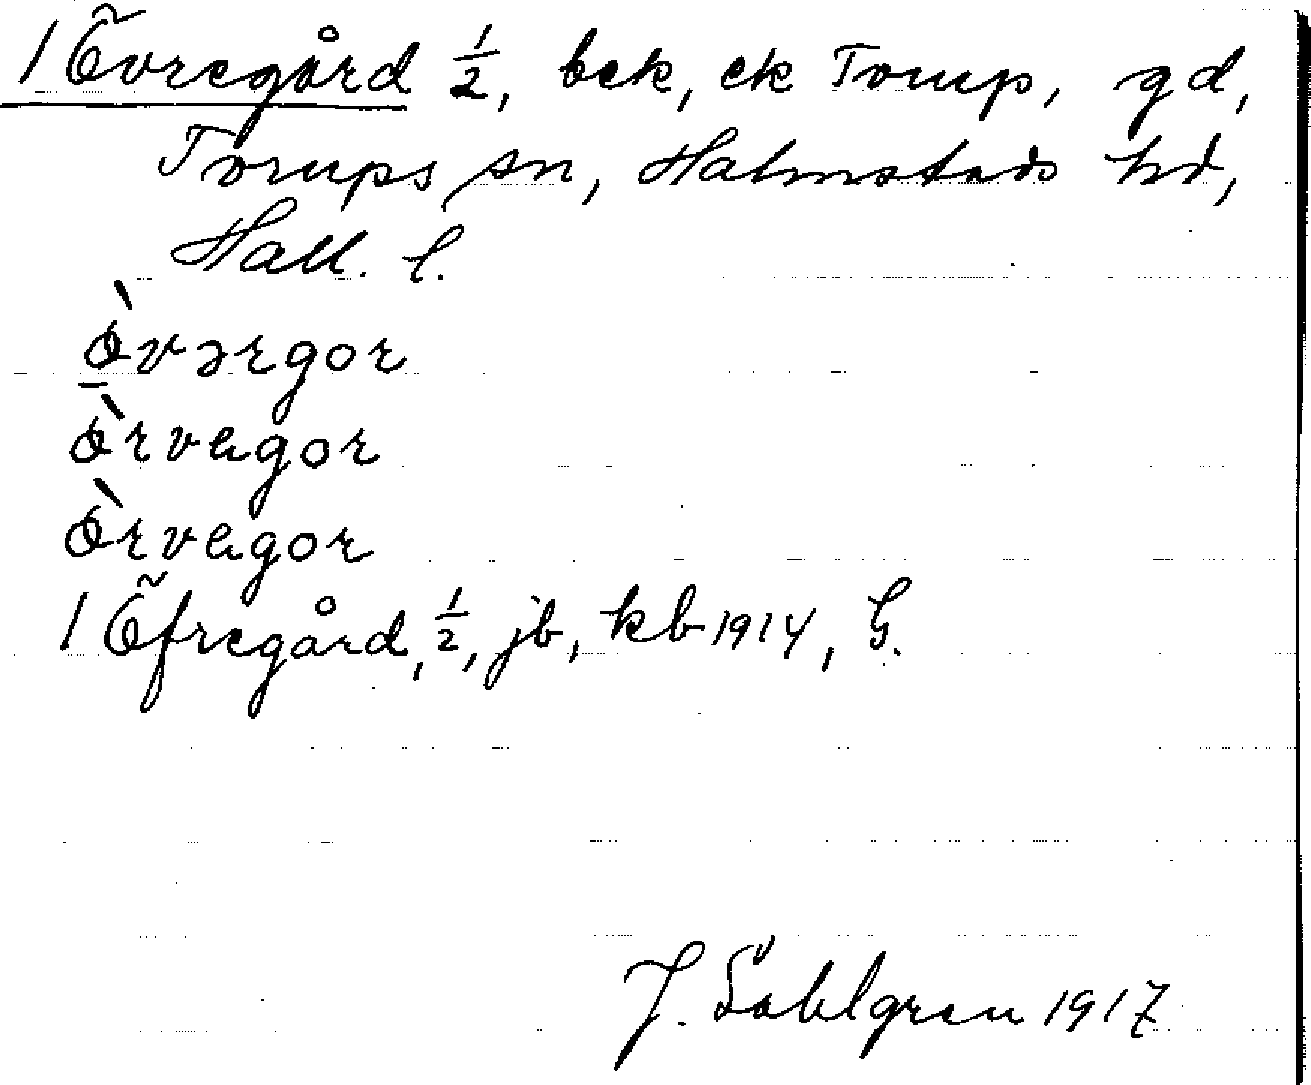 1 Övregård ½, bek, ek Torup, gd,
Torups sn, Halmstads hd,
Hall. l.
ø̀vərgor
ø̀rvagor
ø̀rvagor
1 Öfregård, ½, jb, kb 1914, G.
J. Sahlgren 1917